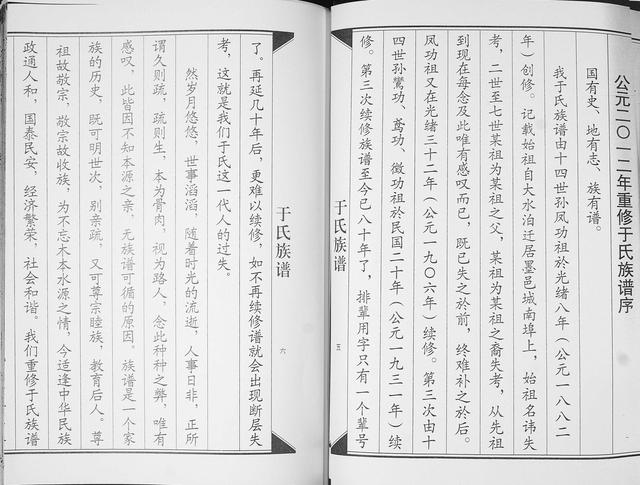 公元二〇一二年重修于氏族谱序
国有史、地有志、族有谱。
我于氏族谱由十四世孙凤功祖於光绪八年（公元一八八二
年）创修。记载始祖自大水泊迁居墨邑城南埠上，始祖名讳失
考，二世至七世某祖为某祖之父，某祖为某祖之裔失考，从先祖
到现在每念及此唯有感叹而已，既已失之於前，终难补之於后。
凤功祖又在光绪三十二年（公元一九〇六年）续修。第三次由十
四世孙鸞功、鸢功、微功祖於民国二十年（公元一九三一年）续
修。第三次续修族谱至今已八十年了，排辈用字只有一个辈号
于氏族谱
五
于氏族谱
六
了。再延几十年后，更难以续修，如不再续修谱就会出现断层失
考，这就是我们于氏这一代人的过失。
然岁月悠悠，世事滔滔，随着时光的流逝，人事日非，正所
谓久则疏，疏则生，本为骨肉，视为路人，念此种种之弊，唯有
感叹，此皆因不知本源之亲，无族谱可循的原因。族谱是一个家
族的历史，既可明世次，别亲疏，又可尊宗睦族，教育后人。尊
祖故敬宗，敬宗故收族，为不忘木本水源之情，今适逢中华民族
政通人和，国泰民安，经济繁荣，社会和谐。我们重修于氏族谱